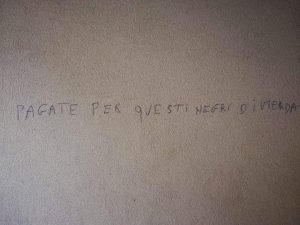 PAGATE PER QUESTI NEGRI DI MERDA